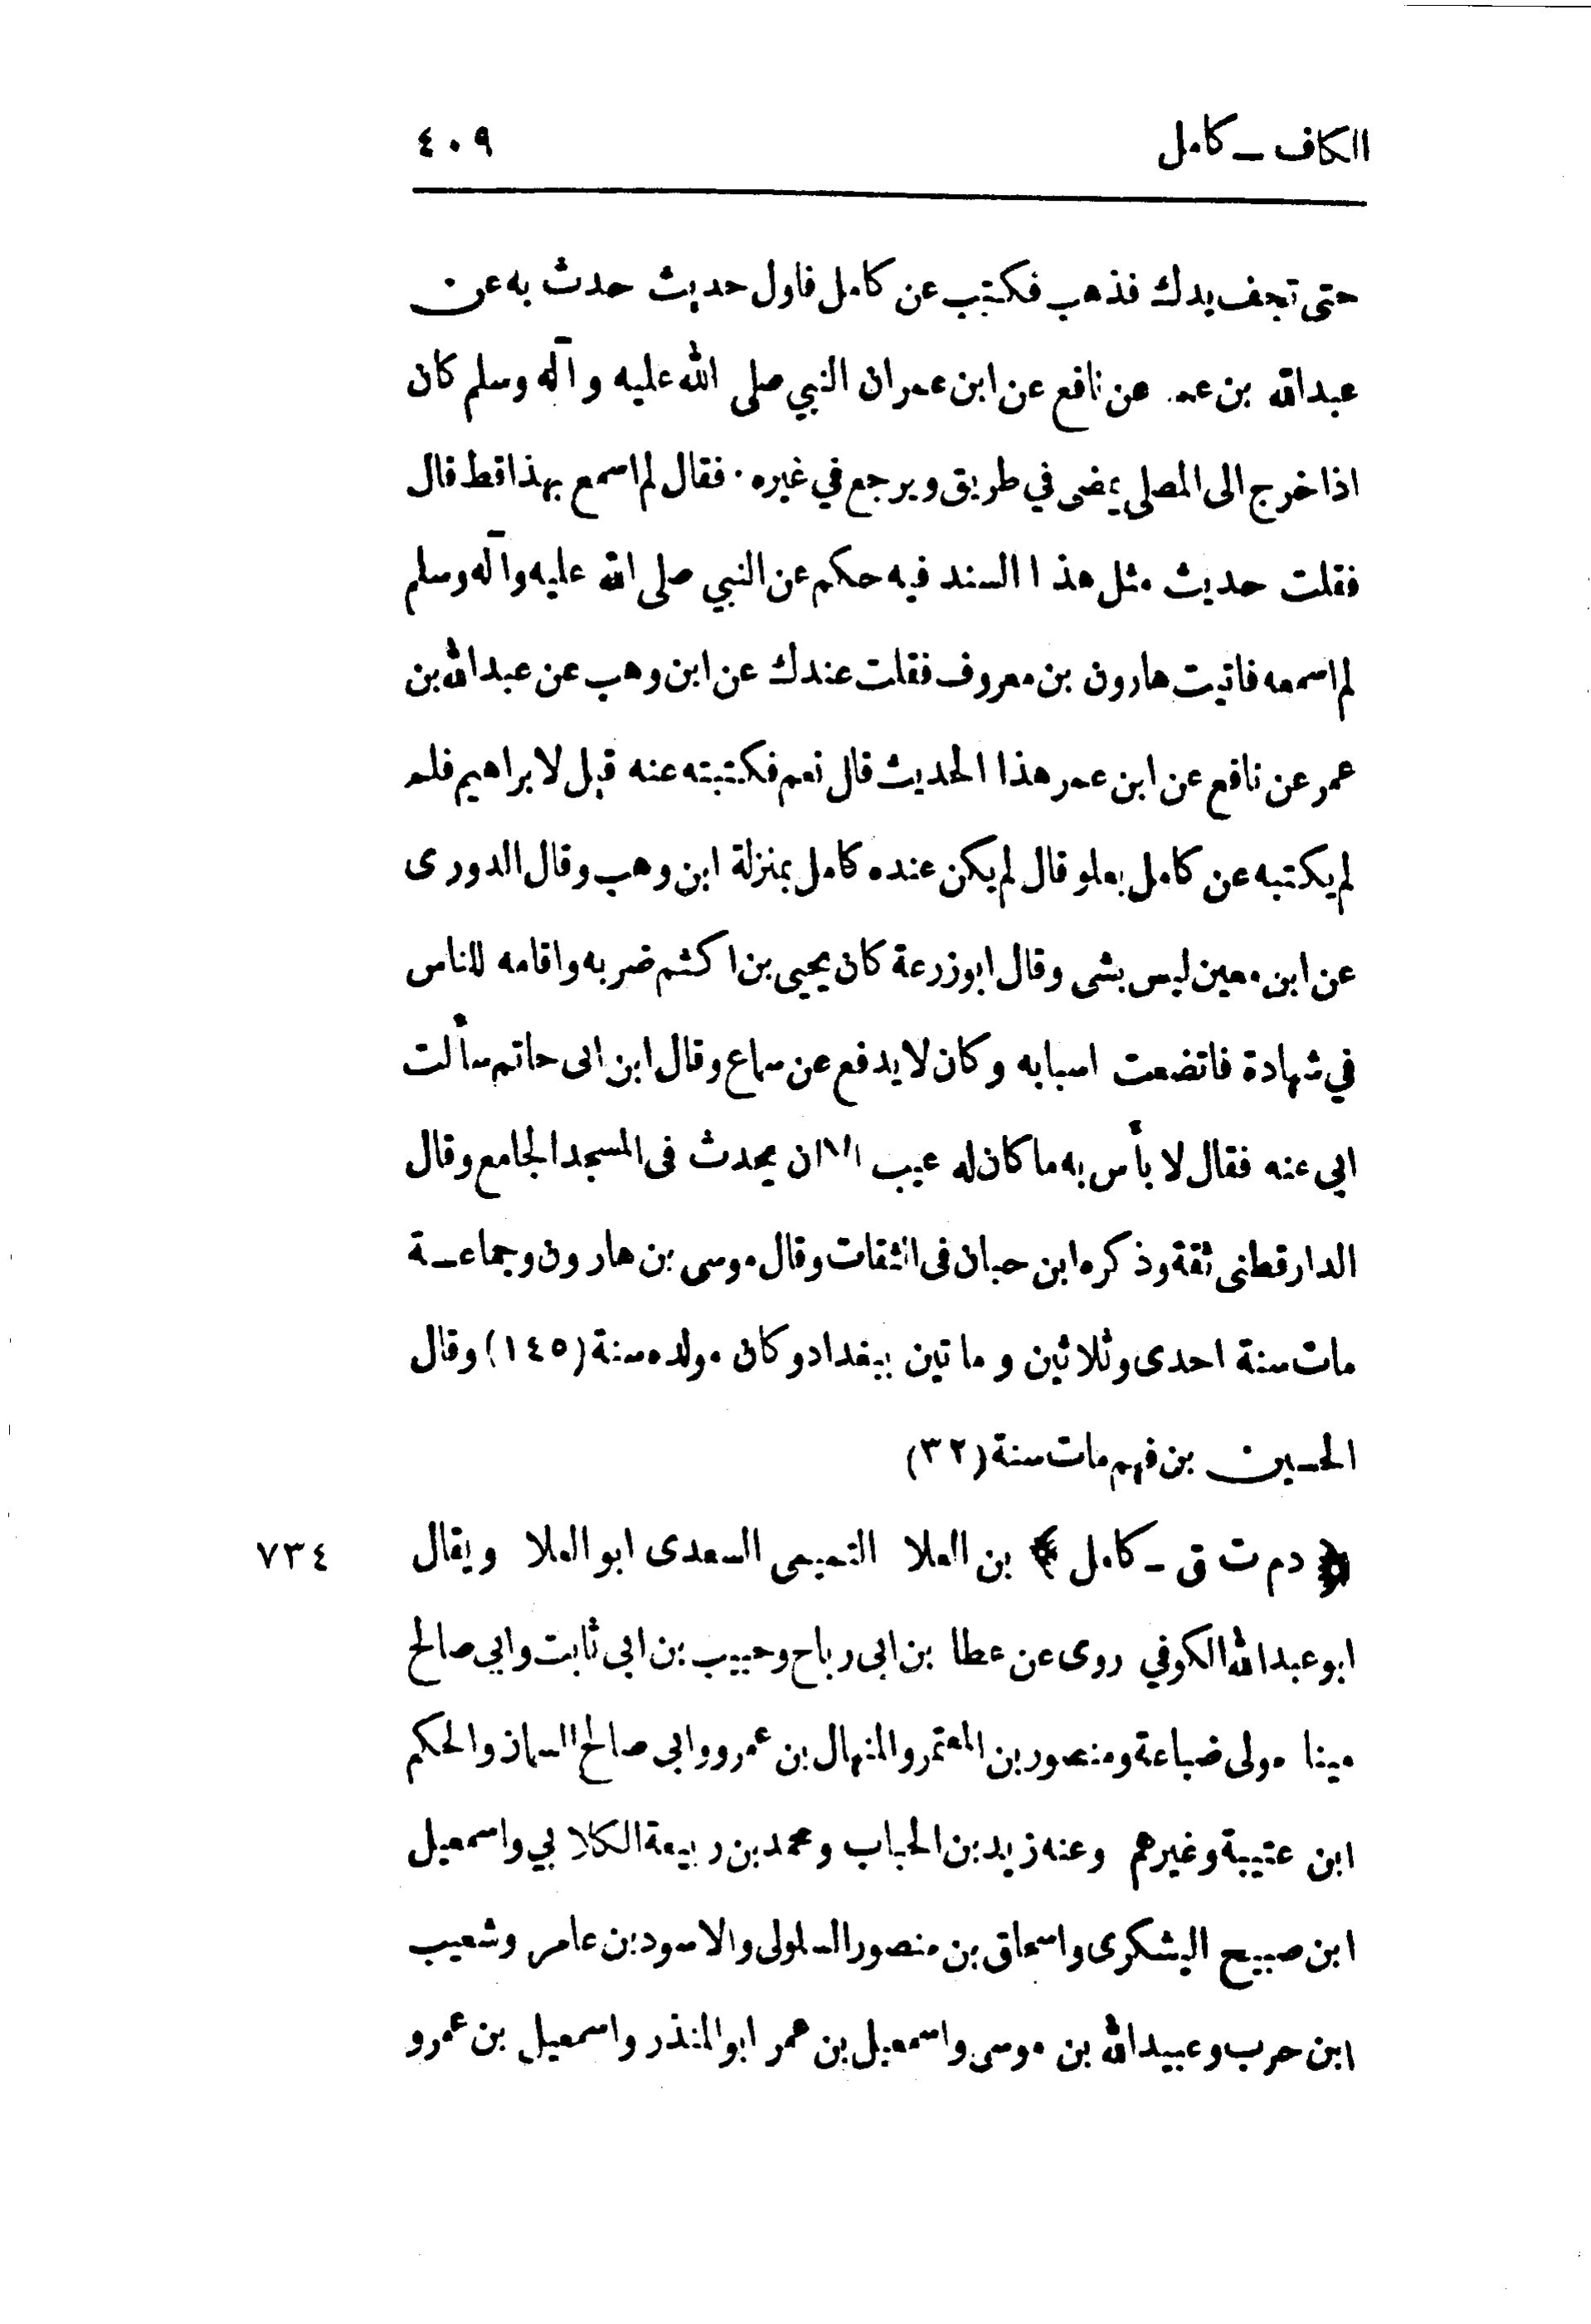 الكاف ـ كامل ٤٠٩
حتى تجف يدك فذهب فكتب عن كامل فاول حديث حدث به عن
عبدالله بن عمر عن نافع عن ابن عمر ان النبي صلى الله عليه وآله وسلم كان
اذا خرج الى المصلى يمضى في طريق ويرجع في غيره. فقال لم اسمع بهذا قط قال
فقلت حديث مثل هذا السند فيه حكم عن النبي صلى الله عليه وآله وسلم
لم اسمعه فاتيت هارون بن معروف فقلت عندك عن ابن وهب عن عبدالله بن
عمر عن نافع عن ابن عمر هذا الحديث قال نعم فكتبته عنه قيل لابراهيم فلم
لم يكتبه عن كامل بعلو قال لم يكن عنده كامل بمنزلة ابن وهب وقال الدورى
عن ابن معين ليس بشى وقال ابوزرعة كان يحيى بن اكثم ضربه واقامه للناس
في شهادة فاتضعت اسبابه وكان لا يدفع عن سماع وقال ابن ابى حاتم سألت
ابي عنه فقال لا بأس به ما كان له عيب الا ان يحدث فى المسجد الجامع وقال
الدارقطنى ثقة وذكره ابن حبان فى الثقات وقال موسى بن هارون وجماعـة
مات سنة احدى وثلاثين وماتين ببغداد وكان مولده سنة (١٤٥) وقال
الحسين بن فهم مات سنة (٣٢)
﴿ دم ت ق ـ كامل ﴾ بن العلا التميمى السعدى ابو العلا ويقال ٧٣٤
ابو عبدالله الكوفي روى عن عطا بن ابى رباح وحبيب بن ابى ثابت وابي صالح
مينا مولى ضباعة ومنصور بن المعتمر والمنهال بن عمرو وابى صالح السمان والحكم
ابن عتيبة وغيرهم وعنه زيد بن الحباب ومحمد بن ربيعة الكلابي واسمعيل
ابن صبيح اليشكرى واسحاق بن منصور السلولى والاسود بن عامر وشعيب
ابن حرب وعبيدالله بن موسى واسمعيل بن عمر ابو المنذر واسمعيل بن عمرو